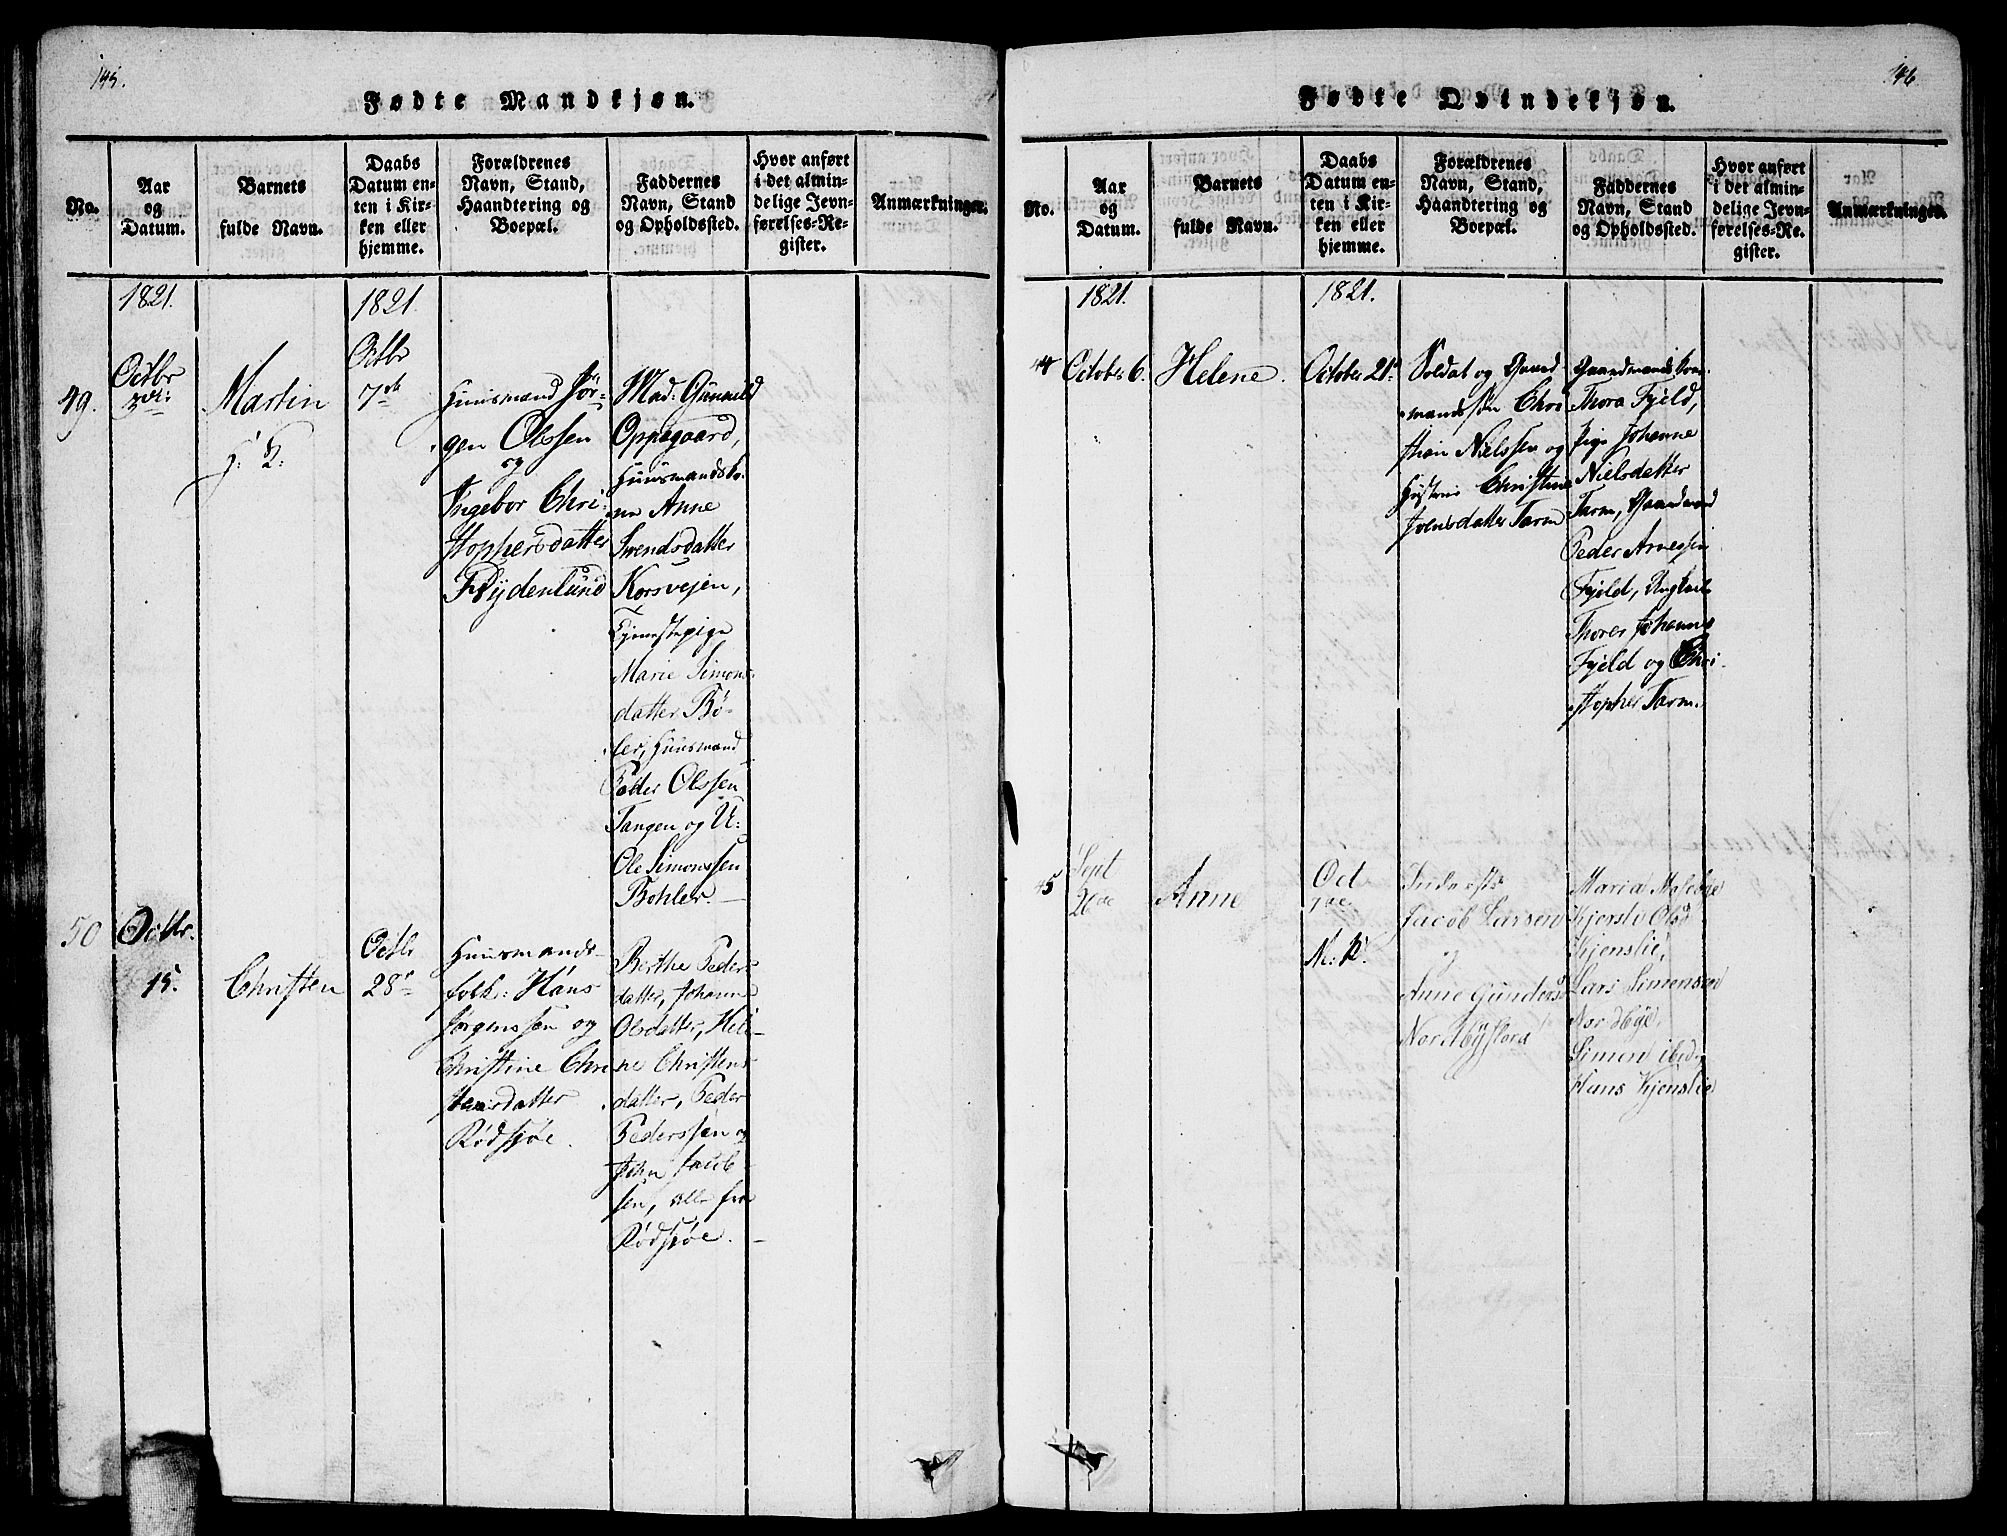 145.
Fødte Mandkjøn.
No.
Aar
og
Datum.
Barnets
fulde Navn.
Daabs
Datum en-
ten i Kir-
ken eller
hjemme.
Forældrenes
Navn, Stand,
Haandtering og
Boepæl.
Faddernes
Navn, Stand
og Opholdssted.
Hvor anført
i det almin-
delige Jevn-
førelses-Re-
gister.
Anmærkninger.
1821.
1821
49.
Octbr
3die
Martin
Octbr
7de
Huusmand Jør-
gen Olssen
og
Ingebor Chri-
stophersdatter
Frydenlund
Mad: Gunnild
Oppegaard,
Huusmandsko-
ne Anne
Svendsdatter
Korsvejen,
Tjenestepige
Marie Simons-
datter Bø-
ler, Huusmand
Peder Olssen
Tangen og U:
Ole Simonssen
Bøhler.
50
Octbr.
15.
Christen
Octbr
28de
Huusmands-
folk: Hans
Jørgenssen og
Christine Chri
stensdatter
Rødsjøe.
Berthe Peders-
datter, Johanne
Olsdatter, Heli-
ne Christens-
datter, Peder
Pederssen og
John Jacob-
sen, alle fra
Rødsjøe.
146
Fødte Qvindekjøn.
No.
Aar
og
Datum.
Barnets
fulde Navn.
Daabs
Datum en-
ten i Kir-
ken eller
hjemme.
Forældrenes
Navn, Stand,
Haandtering og
Boepæl.
Faddernes
Navn, Stand
og Opholdssted.
Hvor anført
i det almin-
delige Jevn-
førelses-Re-
gister.
Anmærkninger.
1821.
1821.
44
October 6.
Helene.
October 21de
Soldat og Gaard
mandssøn Chri
stian Nielssen og
Hustrue Christine
Joensdatter Tarm
Gaardmandskone
Thora Fjeld,
Pige Johanne
Nielsdatter
Tarm, Gaardmand
Peder Arnessen
Fjeld, Ungkarl
Thorer Johannes
Fjeld og Chri-
stopher Tarm.
45
Sept
26de
Anne
Oct
7de
N: K.
Inderst
Jacob Larsen
og
Anne Gunders
Nordbyflora
Maria
Kjersti Olsd
Kjenslie,
Lars Simensen
Nordbye,
Simen ibid.
Hans Kjenslie